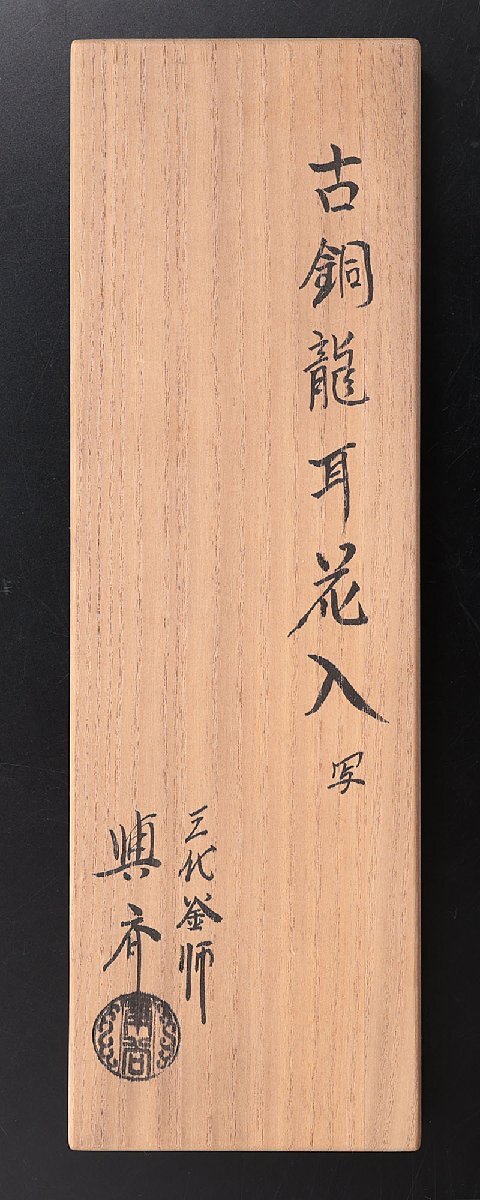 古銅龍耳花入 写
三代釜師
興斎